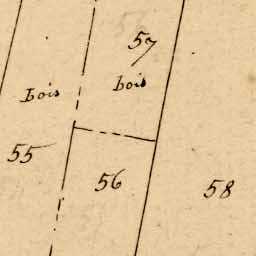 57
bois
bois
55
56
58